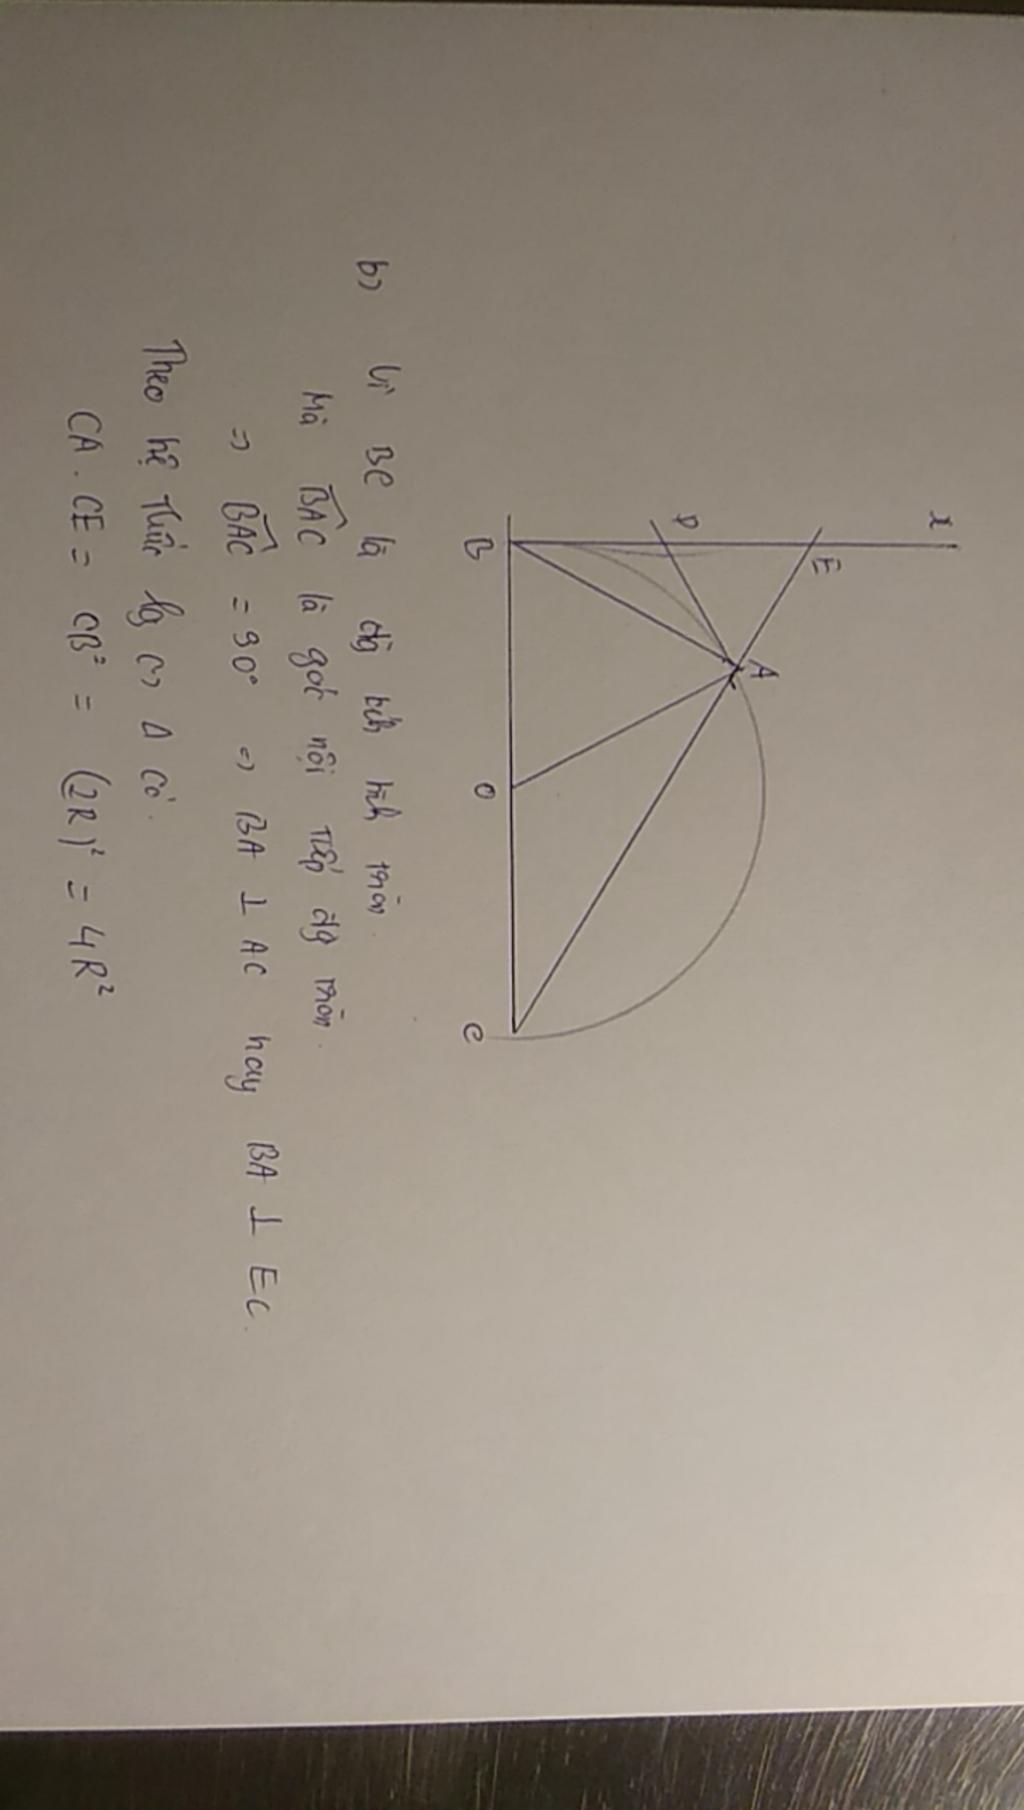 x
E
D
A
B
O
C
b) Vì BC là đg kính hình tròn.
Mà B̂AC là góc nội tiếp đg tròn.
=> B̂AC = 90° => BA ⊥ AC hay BA ⊥ EC.
Theo hệ thức lg Δ có.
CA . CE = CB² = (2R)² = 4R²